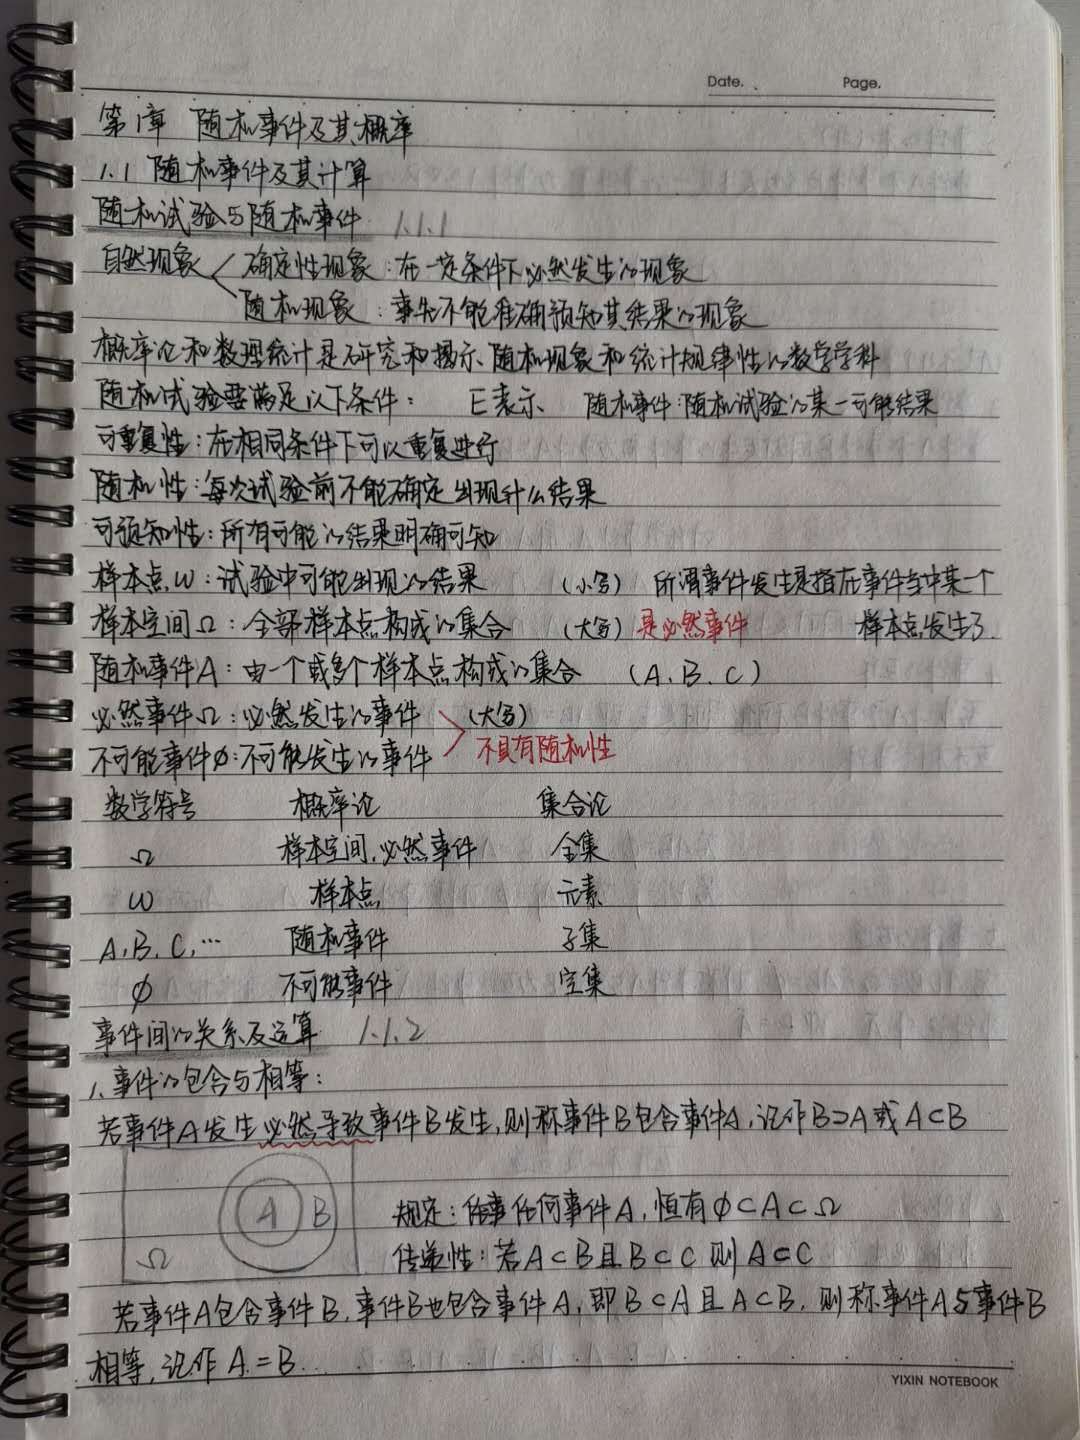 Date. Page.
第1章 随机事件及其概率
1.1 随机事件及其计算
随机试验与随机事件 1.1.1
自然现象 < 确定性现象:在一定条件下必然发生的现象
随机现象:事先不能准确预知其结果的现象
概率论和数理统计是研究和揭示随机现象和统计规律性的数学学科
随机试验要满足以下条件: E表示 随机事件:随机试验的某一可能结果
可重复性:在相同条件下可以重复进行
随机性:每次试验前不能确定出现什么结果
可预知性:所有可能的结果明确可知
样本点ω:试验中可能出现的结果 (小写) 所谓事件发生是指在事件当中某一个
样本空间Ω:全部样本点构成的集合 (大写) 是必然事件 样本点发生了.
随机事件A:由一个或多个样本点构成的集合 (A、B、C)
必然事件Ω:必然发生的事件 > (大写)
不可能事件φ:不可能发生的事件 不具有随机性
数学符号 概率论 集合论
Ω 样本空间,必然事件 全集
ω 样本点 元素
A,B,C,… 随机事件 子集
φ 不可能事件 空集
事件间的关系及运算 1.1.2
1.事件的包含与相等:
若事件A发生必然导致事件B发生,则称事件B包含事件A,记作B⊃A或A⊂B
A B Ω
规定:任何事件A,恒有φ⊂A⊂Ω
传递性:若A⊂B且B⊂C则A⊂C
若事件A包含事件B,事件B也包含事件A,即B⊂A且A⊂B,则称事件A与事件B
相等,记作A=B
YIXIN NOTEBOOK